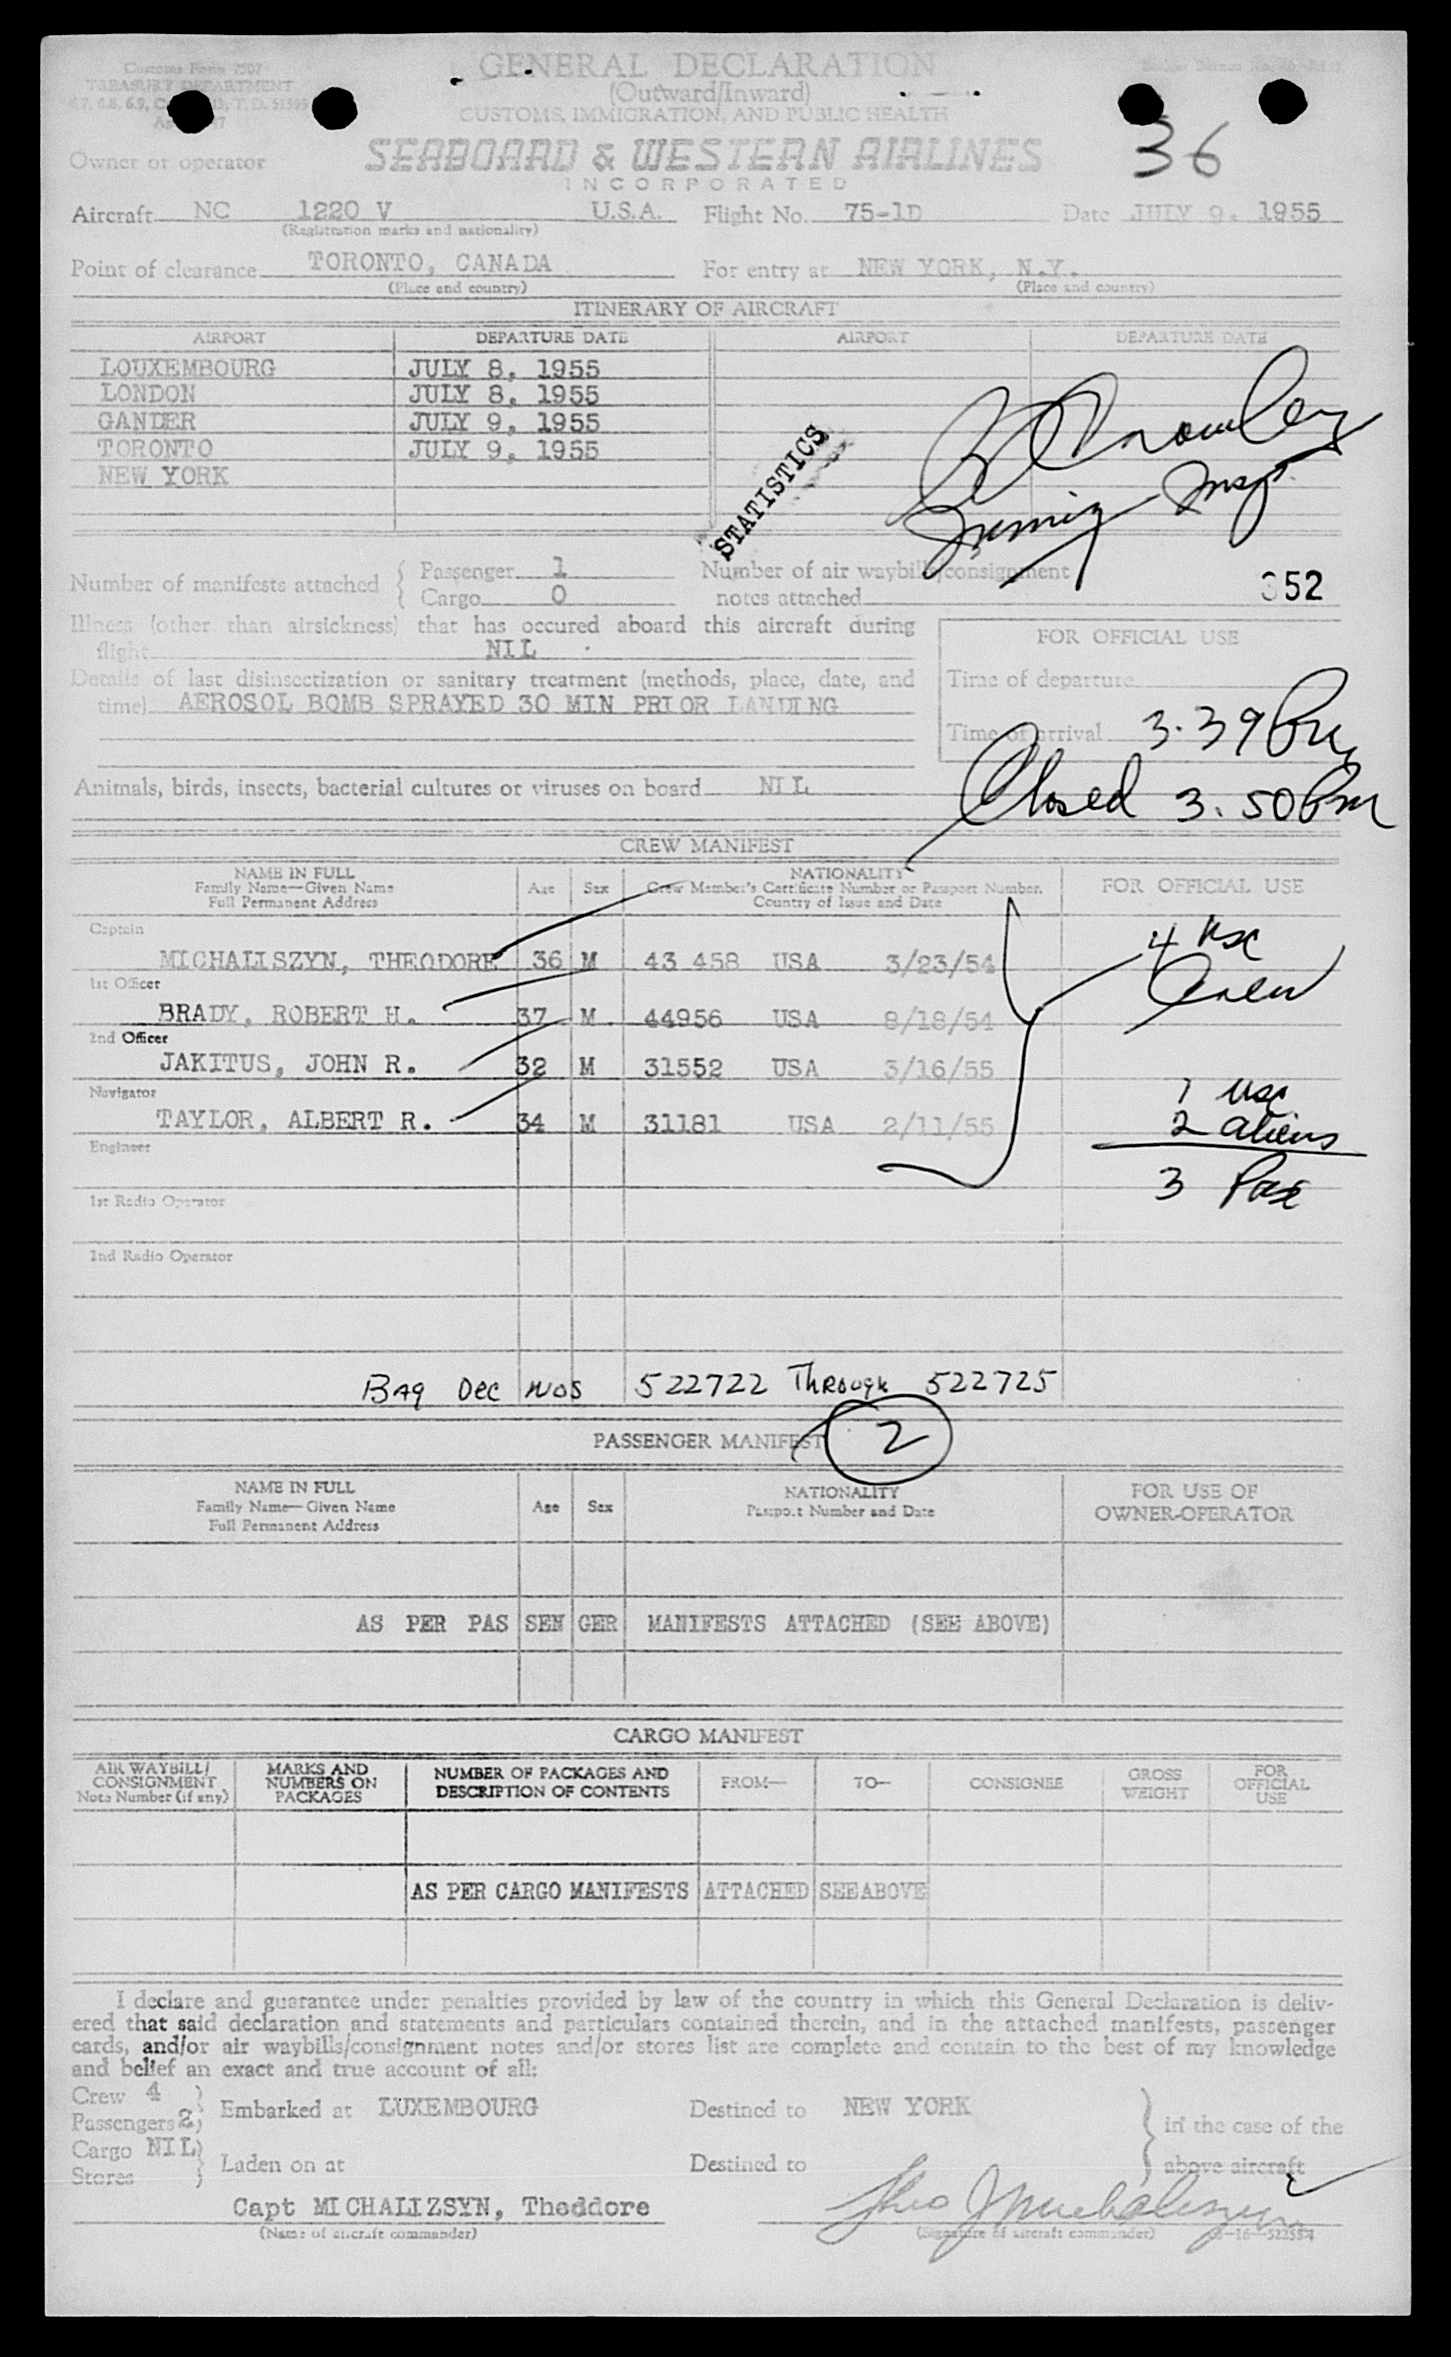 Customs Form 7507
TREASURY DEPARTMENT
GENERAL DECLARATION
(Outward/Inward)
CUSTOMS, IMMIGRATION, AND PUBLIC HEALTH
36
Owner or operator SEABOARD & WESTERN AIRLINES
INCORPORATED
Aircraft NC 1220 V U.S.A. Flight No. 75-1D Date JULY 9. 1955
(Registration marks and nationality)
Point of clearance TORONTO, CANADA For entry at NEW YORK, N.Y.
(Place and country) (Place and country)
ITINERARY OF AIRCRAFT
AIRPORT DEPARTURE DATE AIRPORT DEPARTURE DATE
LOUXEMBOURG JULY 8, 1955
LONDON JULY 8, 1955
GANDER JULY 9, 1955
TORONTO JULY 9, 1955
NEW YORK
STATISTICS
Immig Inspt.
Number of manifests attached { Passenger 1 Number of air waybills/consignment
Cargo 0 notes attached 352
Illness (other than airsickness) that has occured aboard this aircraft during
flight NIL
FOR OFFICIAL USE
Details of last disinsectization or sanitary treatment (methods, place, date, and
time) AEROSOL BOMB SPRAYED 30 MIN PRIOR LANDING
Time of departure
Time of arrival 3.39 Pm
Closed 3.50 Pm
Animals, birds, insects, bacterial cultures or viruses on board NIL
CREW MANIFEST
NAME IN FULL
Family Name—Given Name
Full Permanent Address
Age Sex
NATIONALITY
Crew Member's Certificate Number or Passport Number.
Country of Issue and Date
FOR OFFICIAL USE
Captain
MICHALISZYN, THEODORE 36 M 43 458 USA 3/23/54
4 usc
Crew
1st Officer
BRADY, ROBERT H. 37 M 44956 USA 8/18/54
2nd Officer
JAKITUS, JOHN R. 32 M 31552 USA 3/16/55
Navigator
TAYLOR, ALBERT R. 34 M 31181 USA 2/11/55
1 usc
2 aliens
3 Pax
Engineer
1st Radio Operator
2nd Radio Operator
Bag Dec Nos 522722 Through 522725
PASSENGER MANIFEST 2
NAME IN FULL
Family Name—Given Name
Full Permanent Address
Age Sex
NATIONALITY
Passport Number and Date
FOR USE OF
OWNER-OPERATOR
AS PER PAS SEN GER MANIFESTS ATTACHED (SEE ABOVE)
CARGO MANIFEST
AIR WAYBILL/
CONSIGNMENT
Note Number (if any)
MARKS AND
NUMBERS ON
PACKAGES
NUMBER OF PACKAGES AND
DESCRIPTION OF CONTENTS
FROM— TO— CONSIGNEE
GROSS
WEIGHT
FOR
OFFICIAL
USE
AS PER CARGO MANIFESTS ATTACHED SEE ABOVE
I declare and guarantee under penalties provided by law of the country in which this General Declaration is deliv-
ered that said declaration and statements and particulars contained therein, and in the attached manifests, passenger
cards, and/or air waybills/consignment notes and/or stores list are complete and contain to the best of my knowledge
and belief an exact and true account of all:
Crew 4
Passengers 2 Embarked at LUXEMBOURG Destined to NEW YORK in the case of the
Cargo NIL
Stores Laden on at Destined to above aircraft
Capt MICHALIZSYN, Theddore
(Name of aircraft commander) (Signature of aircraft commander)